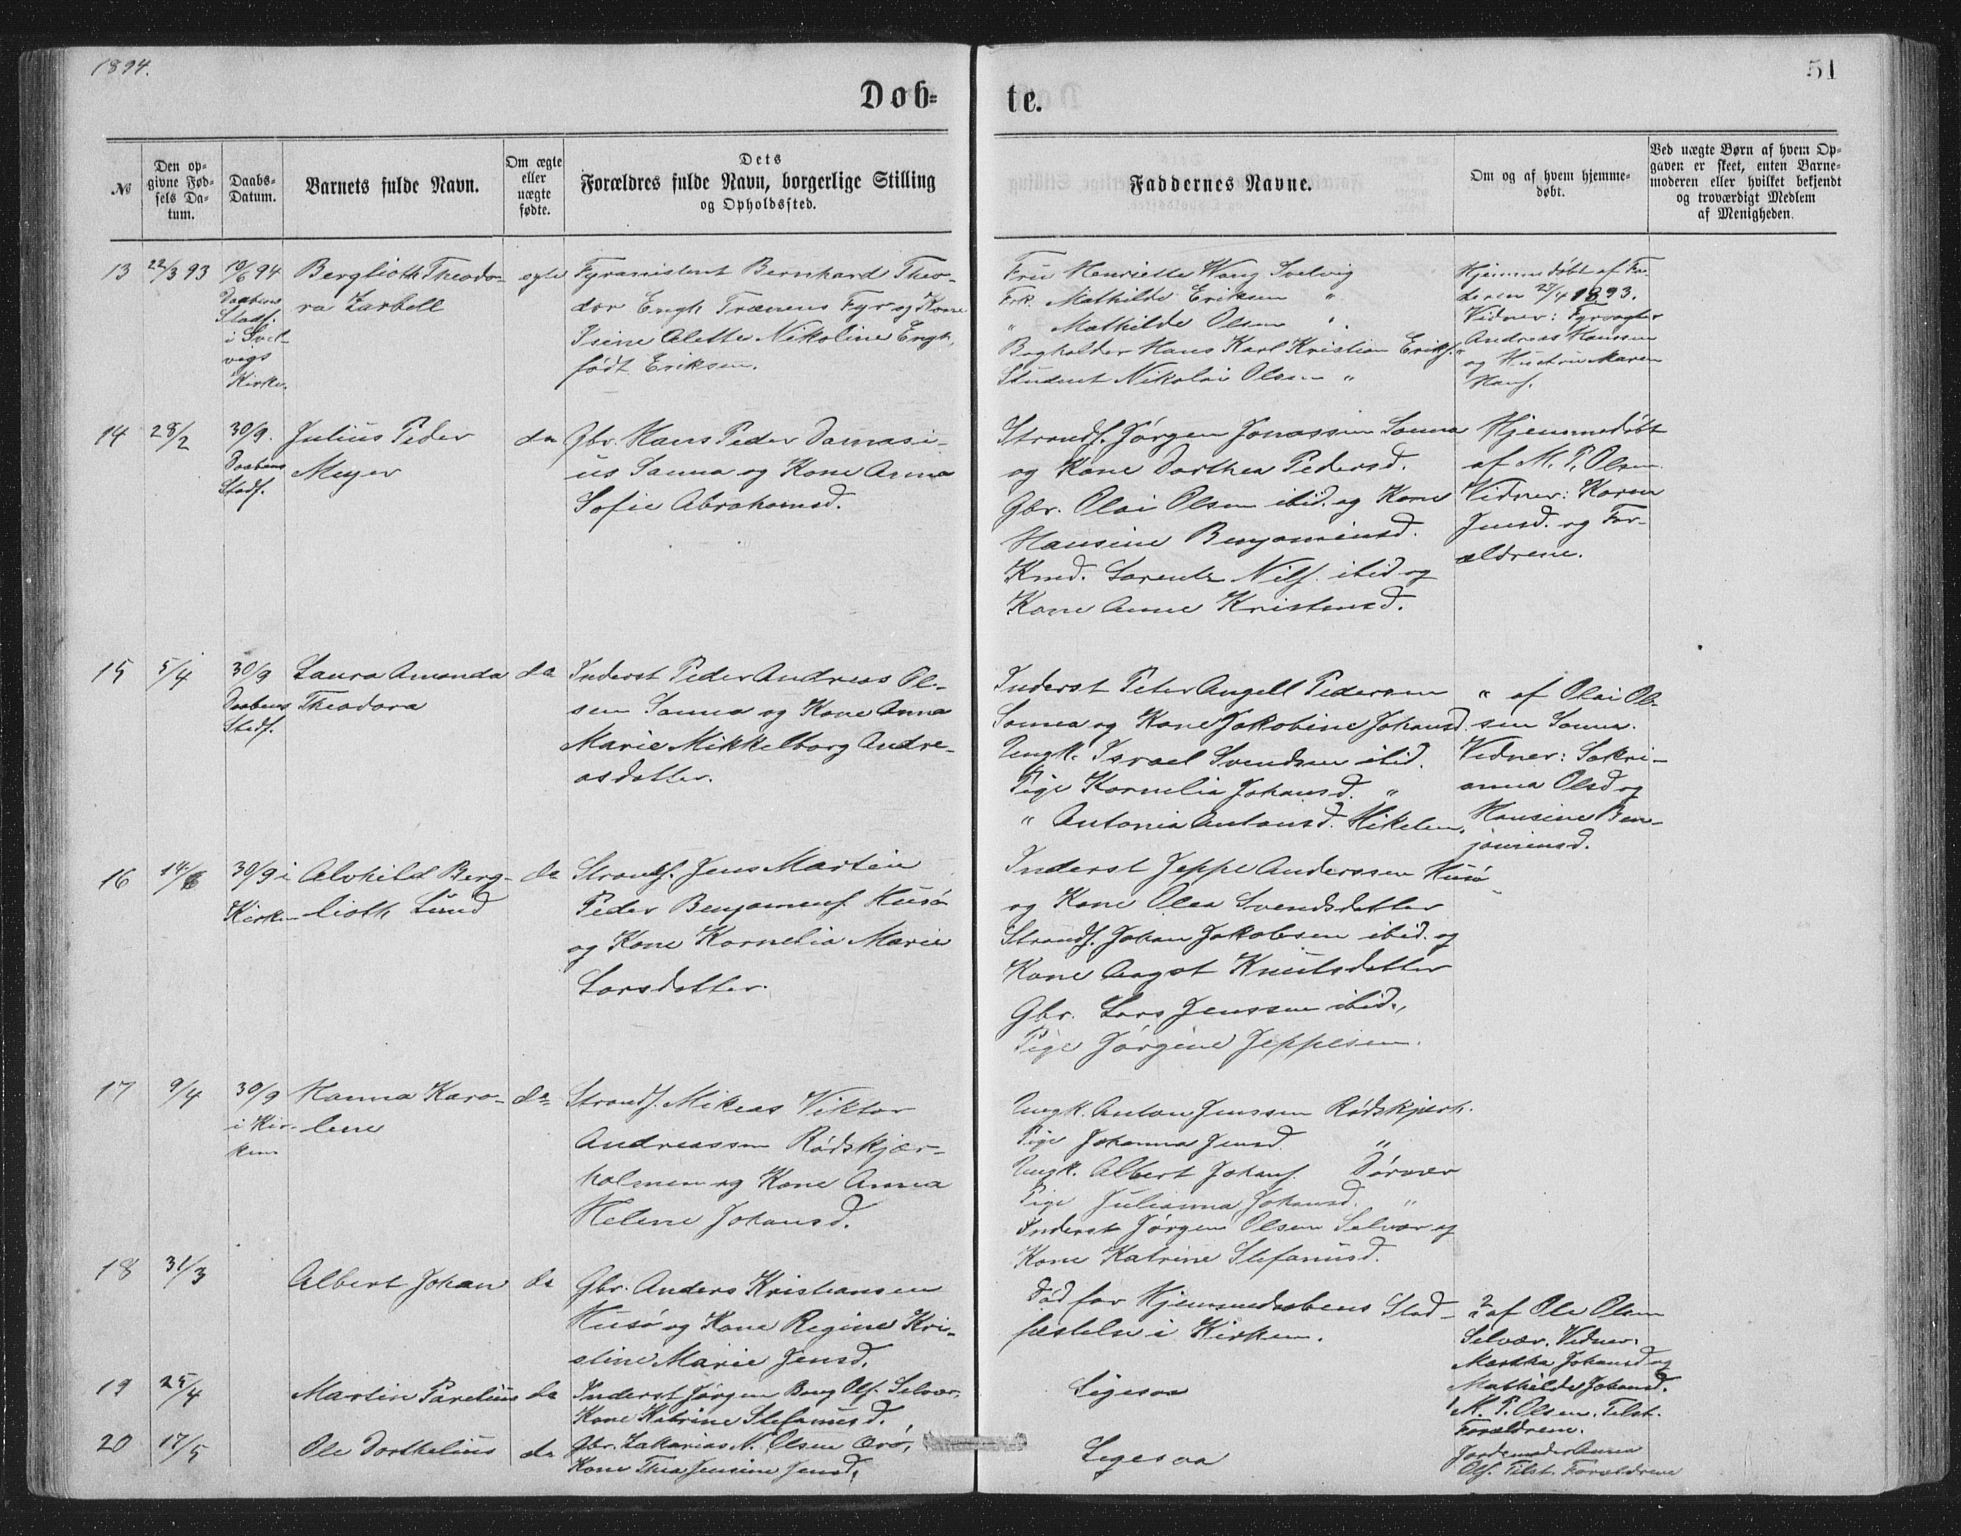 1894.
51
Døb-
te.
№
Den op-
givne Fød-
sels Da-
tum.
Daabs-
Datum.
Barnets fulde Navn.
Om ægte
eller
uægte
fødte.
Dets
Forældres fulde Navn, borgerlige Stilling
og Opholdssted.
Faddernes Navne.
Om og af hvem hjemme-
døbt.
Ved uægte Børn af hvem Op-
gaven er skeet, enten Barne-
moderen eller hvilket bekjendt
og troværdigt Medlem
af Menigheden.
13
22/3 93
10/6 94
Daabens
Stadf.
i Svel-
vigs
Kirke.
Berglioth Theodo-
ra Zarbell
egte
Fyrassistent Bernhard Theo-
dor Engh Trænens Fyr og Kone
Isine Alette Nikoline Engh,
født Eriksen.
Fru Henriette Wang Svelvig
Frk. Mathilde Eriksen "
" Mathilde Olsen "
Bogholder Hans Karl Kristian Eriks. "
Student Nikolai Olsen "
Hjemmedøbt af Fa-
deren 27/4 1893.
Vidner: Fyrvogter
Andreas Hanssen
og Hustru Maren
Hans.
14
28/2
30/9.
Daabens
Stadf.
Julius Peder
Meyer
da
Gbr. Hans Peder Damasi-
us Sanna og Kone Anna
Sofie Abrahamsd.
Strands. Jørgen Jonassen Sanna
og Kone Dorthea Pedersd.
Gbr. Olai Olsen ibid. og Kone
Hansine Benjaminsd.
Kmd. Lorentz Nils. ibid og
Kone Anne Kristensd.
Hjemmedøbt
af M. P. Olsen
Vidner: Karen
Jensd. og For-
ældrene.
15
5/4
30/9
Daabens
Stadf.
Laura Amanda
Theodora
da
Inderst Peder Andreas Ol-
sen Sanna og Kone Anna
Marie Mikkelborg Andre-
asdatter.
Inderst Peter Angell Pedersen
Sanna og Kone Jakobine Johansd.
Ungk. Israel Svendsen ibid.
Pige Kornelia Johansd. "
" Antonia Antonsd. Mikelen,
" af Olai Ol-
sen Sanna.
Vidner: Sakri-
anna Olsd og
Hansine Ben-
jaminsd.
16
14/6
30/9 i
Kirken
Alvhild Berg-
lioth Lund
da
Strands. Jens Martin
Peder Benjamins. Husø
og Kone Kornelia Marie
Larsdatter.
Inderst Jeppe Anderssen Husø
og Kone Olea Svendsdatter
Strands. Johan Jakobsen ibid. og
Kone Angst Knutsdatter
Gbr. Lars Jenssen ibid.,
Pige Jørgine Jeppesen.
17
9/4
30/9
i Kir-
ken
Hanna Karo-
line
da
Strands. Mikeas Viktor
Andreassen Rødskjær-
holmen og Kone Anna
Helene Johansd.
Ungk. Anton Jenssen Rødskjærh.
Pige Johanna Jensd. "
Ungk. Albert Johans. Dørvær
Pige Julianna Johansd. "
Inderst Jørgen Olsen Selvær og
Kone Katrine Stefanusd.
18
31/3
Albert Johan
da
Gbr. Anders Kristiansen
Husø og Kone Regine Kri-
stine Marie Jensd.
Død før Hjemmedaabens Stad-
fæstelse i Kirken.
af Ole Olsen
Selvær. Vidner:
Martha Johansd og
Mathilde Johansd.
19
25/4
Martin Parelius
da
Inderst Jørgen Bang Ols. Selvær,
Kone Katrine Stefanusd.
Ligesaa
M. P. Olsen. Tilst.
Forældrene.
20
17/5
Ole Dorthelius
da
Gbr. Zakarias N. Olsen Ørø,
Kone Thea Jensine Jensd.
Ligesaa
Jordemoder Anna
Ols. Tilst. Forældrene